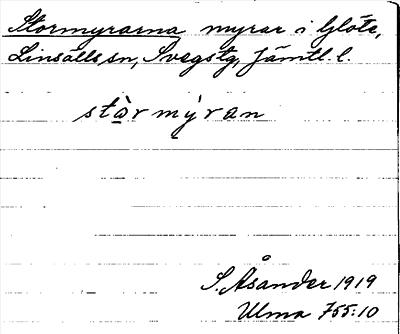 Stormyrarna myrar i Glöte,
Linsälls sn, Svegs tg, Jämtl. l.
stårmýran
S. Åsander 1919
Ulma 755:10